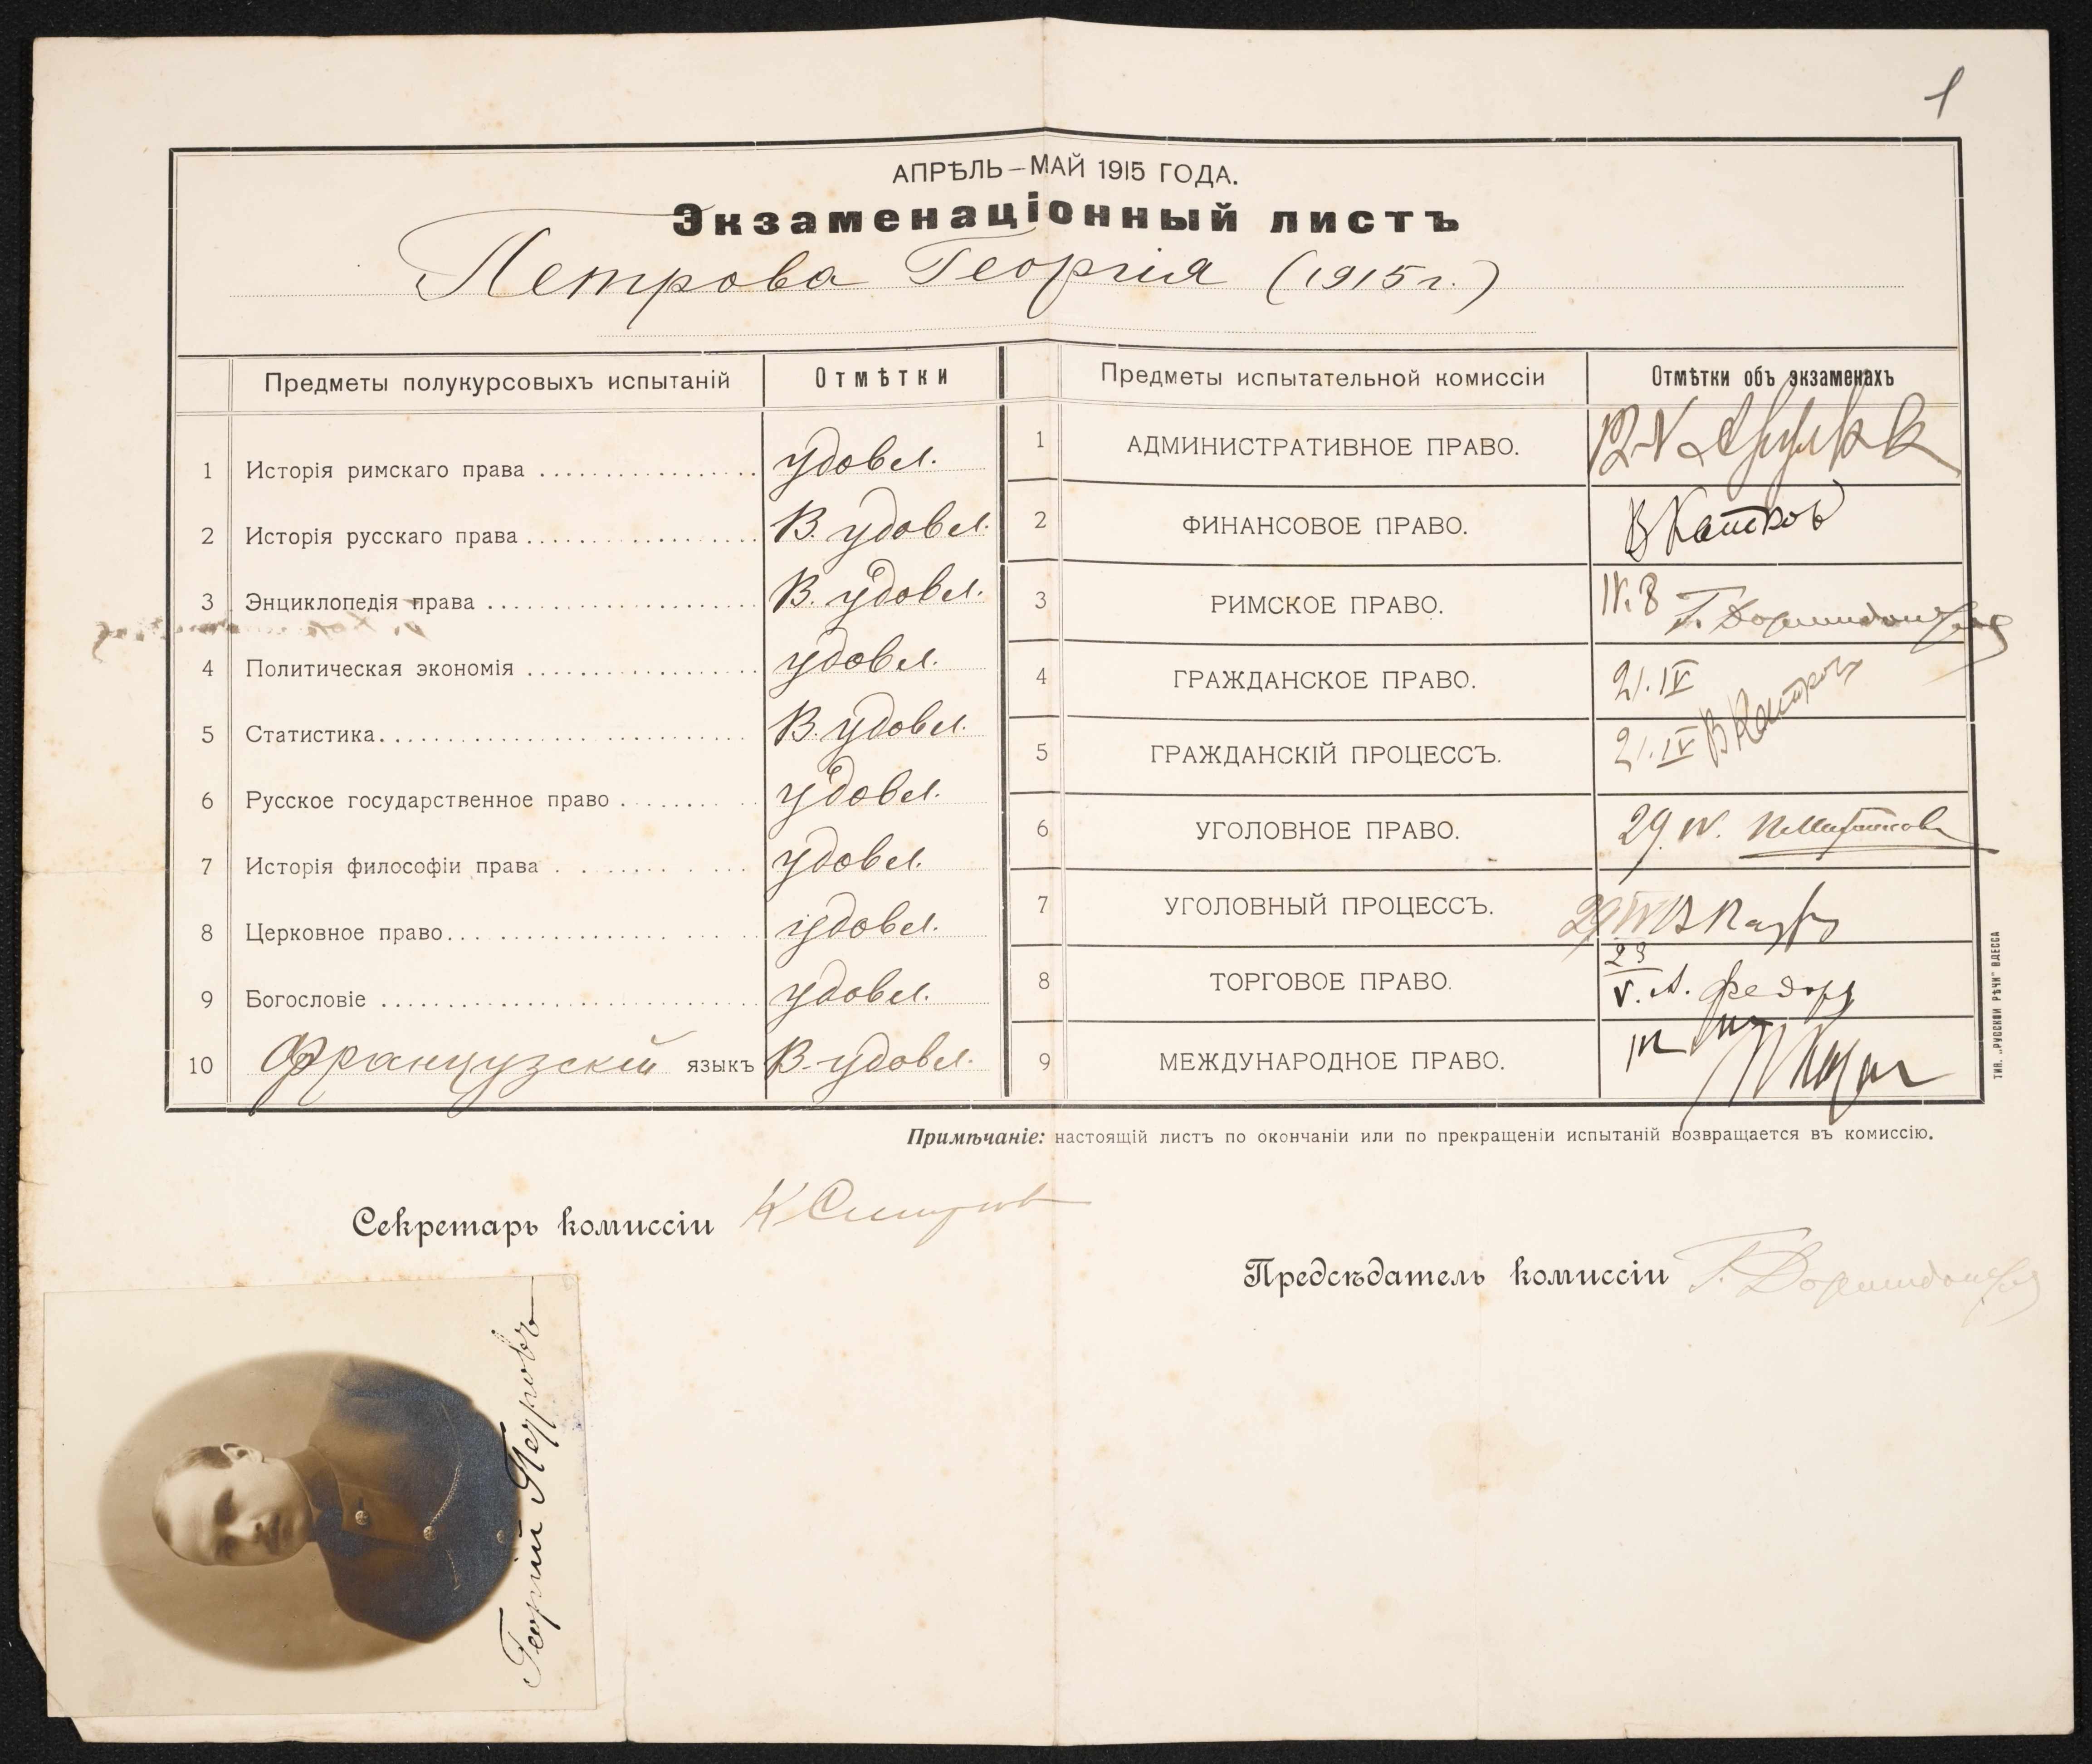 1
АПРѢЛЬ – МАЙ 1915 ГОДА.
Экзаменаціонный листъ
Петрова Георгія (1915 г.)
Предметы полукурсовыхъ испытаній Отмѣтки
1 Исторія римскаго права удовл.
2 Исторія русскаго права В. удовл.
3 Энциклопедія права В. удовл.
4 Политическая экономія удовл.
5 Статистика В. удовл.
6 Русское государственное право удовл.
7 Исторія философіи права удовл.
8 Церковное право удовл.
9 Богословіе удовл.
10 Французскій языкъ В. удовл.
Предметы испытательной комиссіи Отмѣтки объ экзаменахъ
1 АДМИНИСТРАТИВНОЕ ПРАВО.
2 ФИНАНСОВОЕ ПРАВО. В Катков
3 РИМСКОЕ ПРАВО. IV. 8 Г. Доримидонтов
4 ГРАЖДАНСКОЕ ПРАВО. 21. IV
5 ГРАЖДАНСКІЙ ПРОЦЕССЪ. 21. IV В Катков
6 УГОЛОВНОЕ ПРАВО. 29. IV.
7 УГОЛОВНЫЙ ПРОЦЕССЪ. 29 IV
8 ТОРГОВОЕ ПРАВО. 23 V. А. Федоров
9 МЕЖДУНАРОДНОЕ ПРАВО.
ТИП. „РУССКОЙ РѢЧИ" ОДЕССА
Примѣчаніе: настоящій листъ по окончаніи или по прекращеніи испытаній возвращается въ комиссію.
Секретарь комиссіи
Предсѣдатель комиссіи Г. Доримидонтов
Георгій Петровъ